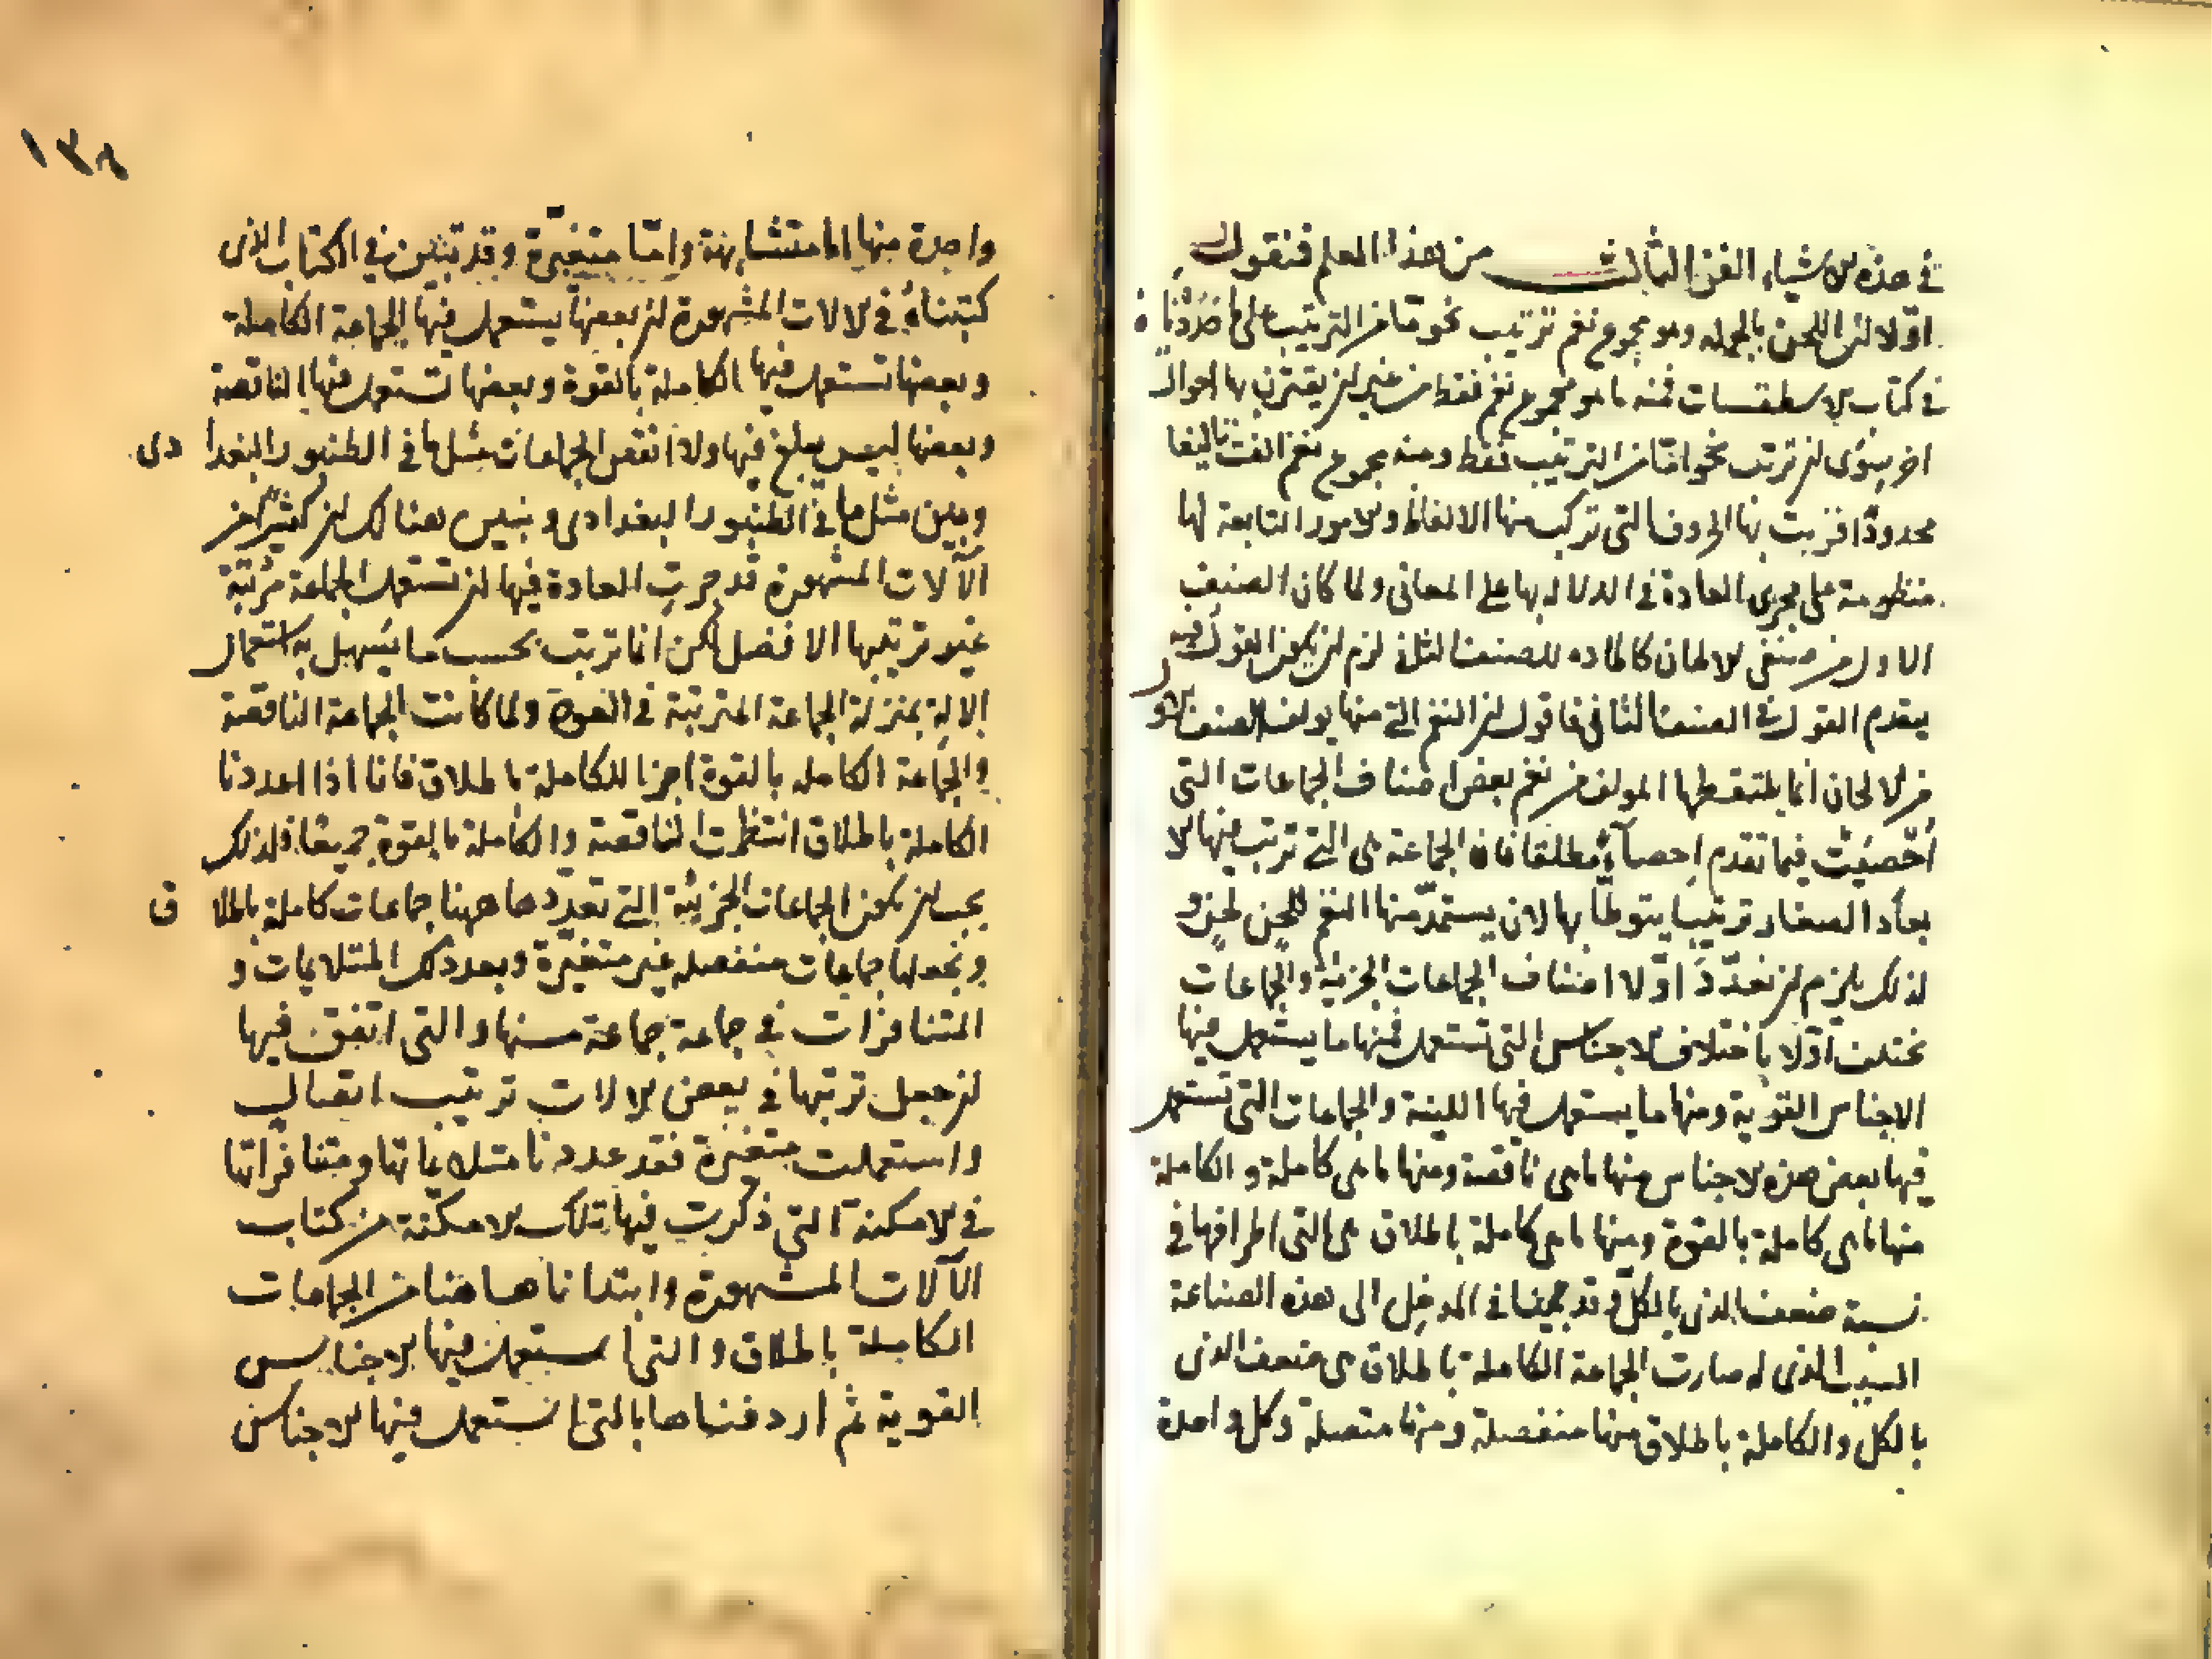 في هذه الاشياء الفن الثالث من هذا المعلم فنقول
اولا ان اللحن بالجملة وهو مجموع نغم ترتيب نحو ما من الترتيب على ما حددنا
في كتاب الاسطقسات فمنه ما هو مجموع نغم فقط من غير ان يقترن بها احوال
اخر سوى ان ترتب نحوا ما من الترتيب فقط ومنه مجموع نغم الفت تاليفا
محدودا قرنت بها الحروف التي تركب منها الالفاظ والامور التابعة لها
منظومة على مجرى العادة في الدلالة بها على المعاني ولما كان الصنف
الاول من صنفي الالحان كالمادة للصنف الثاني لزم ان يكون القول فيه
يتقدم القول في الصنف الثاني فاقول ان النغم التي منها يولف الصنف الاول
من الالحان انما يلتقطها المولف من نغم بعض اصناف الجماعات التي
أحصيت فيما تقدم إحصآءً مطلقا فان الجماعة هي التي ترتب فيها الا
بعاد الصغار ترتيبا يتوطأ بها لان يستمد منها النغم للحن لحن و
لذلك يلزم ان نعدد اولا اصناف الجماعات الجزئية والجماعات
تختلف اولا باختلاف الاجناس التي تستعمل فمنها ما يستعمل فيها
الاجناس القوية ومنها ما يستعمل فيها اللينة والجماعات التي تستعمل
فيها بعض هذه الاجناس منها ما هي ناقصة ومنها ما هي كاملة والكاملة
منها ما هي كاملة بالقوة ومنها ما هي كاملة باطلاق هي التي اطرافها في
نسبة ضعف الذي بالكل وقد بينا في المدخل الى هذه الصناعة
السبب الذي له صارت الجماعة الكاملة باطلاق هي ضعف الذي
بالكل والكاملة باطلاق منها منفصلة ومنها متصلة وكل واحدة
١٣٨
واحدة منها اما متشابهة واما متغيرة وقد تبين في الكتاب الذى
كتبناه في الالات المشهورة ان بعضها يستعمل فيها الجماعة الكاملة
وبعضها تستعمل فيها الكاملة بالقوة وبعضها تستعمل فيها الناقصة
وبعضها ليس يبلغ فيها ولا انقص الجماعات مثل ما في الطنبور البغدا دى
وبين مثل ما في الطنبور البغدادى وتبين هنالك ان كثيرا من
الآلات المشهورة قد جرت العادة فيها ان تستعمل الجماعة مرتبة
غير ترتيبها الافضل لكن انما ترتب بحسب ما يسهل به استعمال
الالة بمنزلة الجماعة المترتبة في العود ولما كانت الجماعة الناقصة
والجماعة الكاملة بالقوة اجزا للكاملة باطلاق فانا اذا اعددنا
الكاملة باطلاق انتظمت الناقصة والكاملة بالقوة جميعا فلذلك
يجب ان تكون الجماعات الجزئية التي نعددها ههنا جماعات كاملة باطلا ق
ونجعلها جماعات منفصلة غير متغيرة ونعدد لك المتلايمات و
المتنافرات في جماعة جماعة منها والتي اتفق فيها
ان جعل ترتبها في بعض الالات ترتيب اتصال
واستعملت متغيرة فقد عددنا متلايماتها ومتنافراتها
في الامكنة التي ذكرت فيها تلك الامكنة من كتاب
الآلات المشهورة وابتدانا هاهنا من الجماعات
الكاملة باطلاق والتي يستعمل فيها الاجناس
القوية ثم اردفناها بالتي نستعمل فيها الاجناس